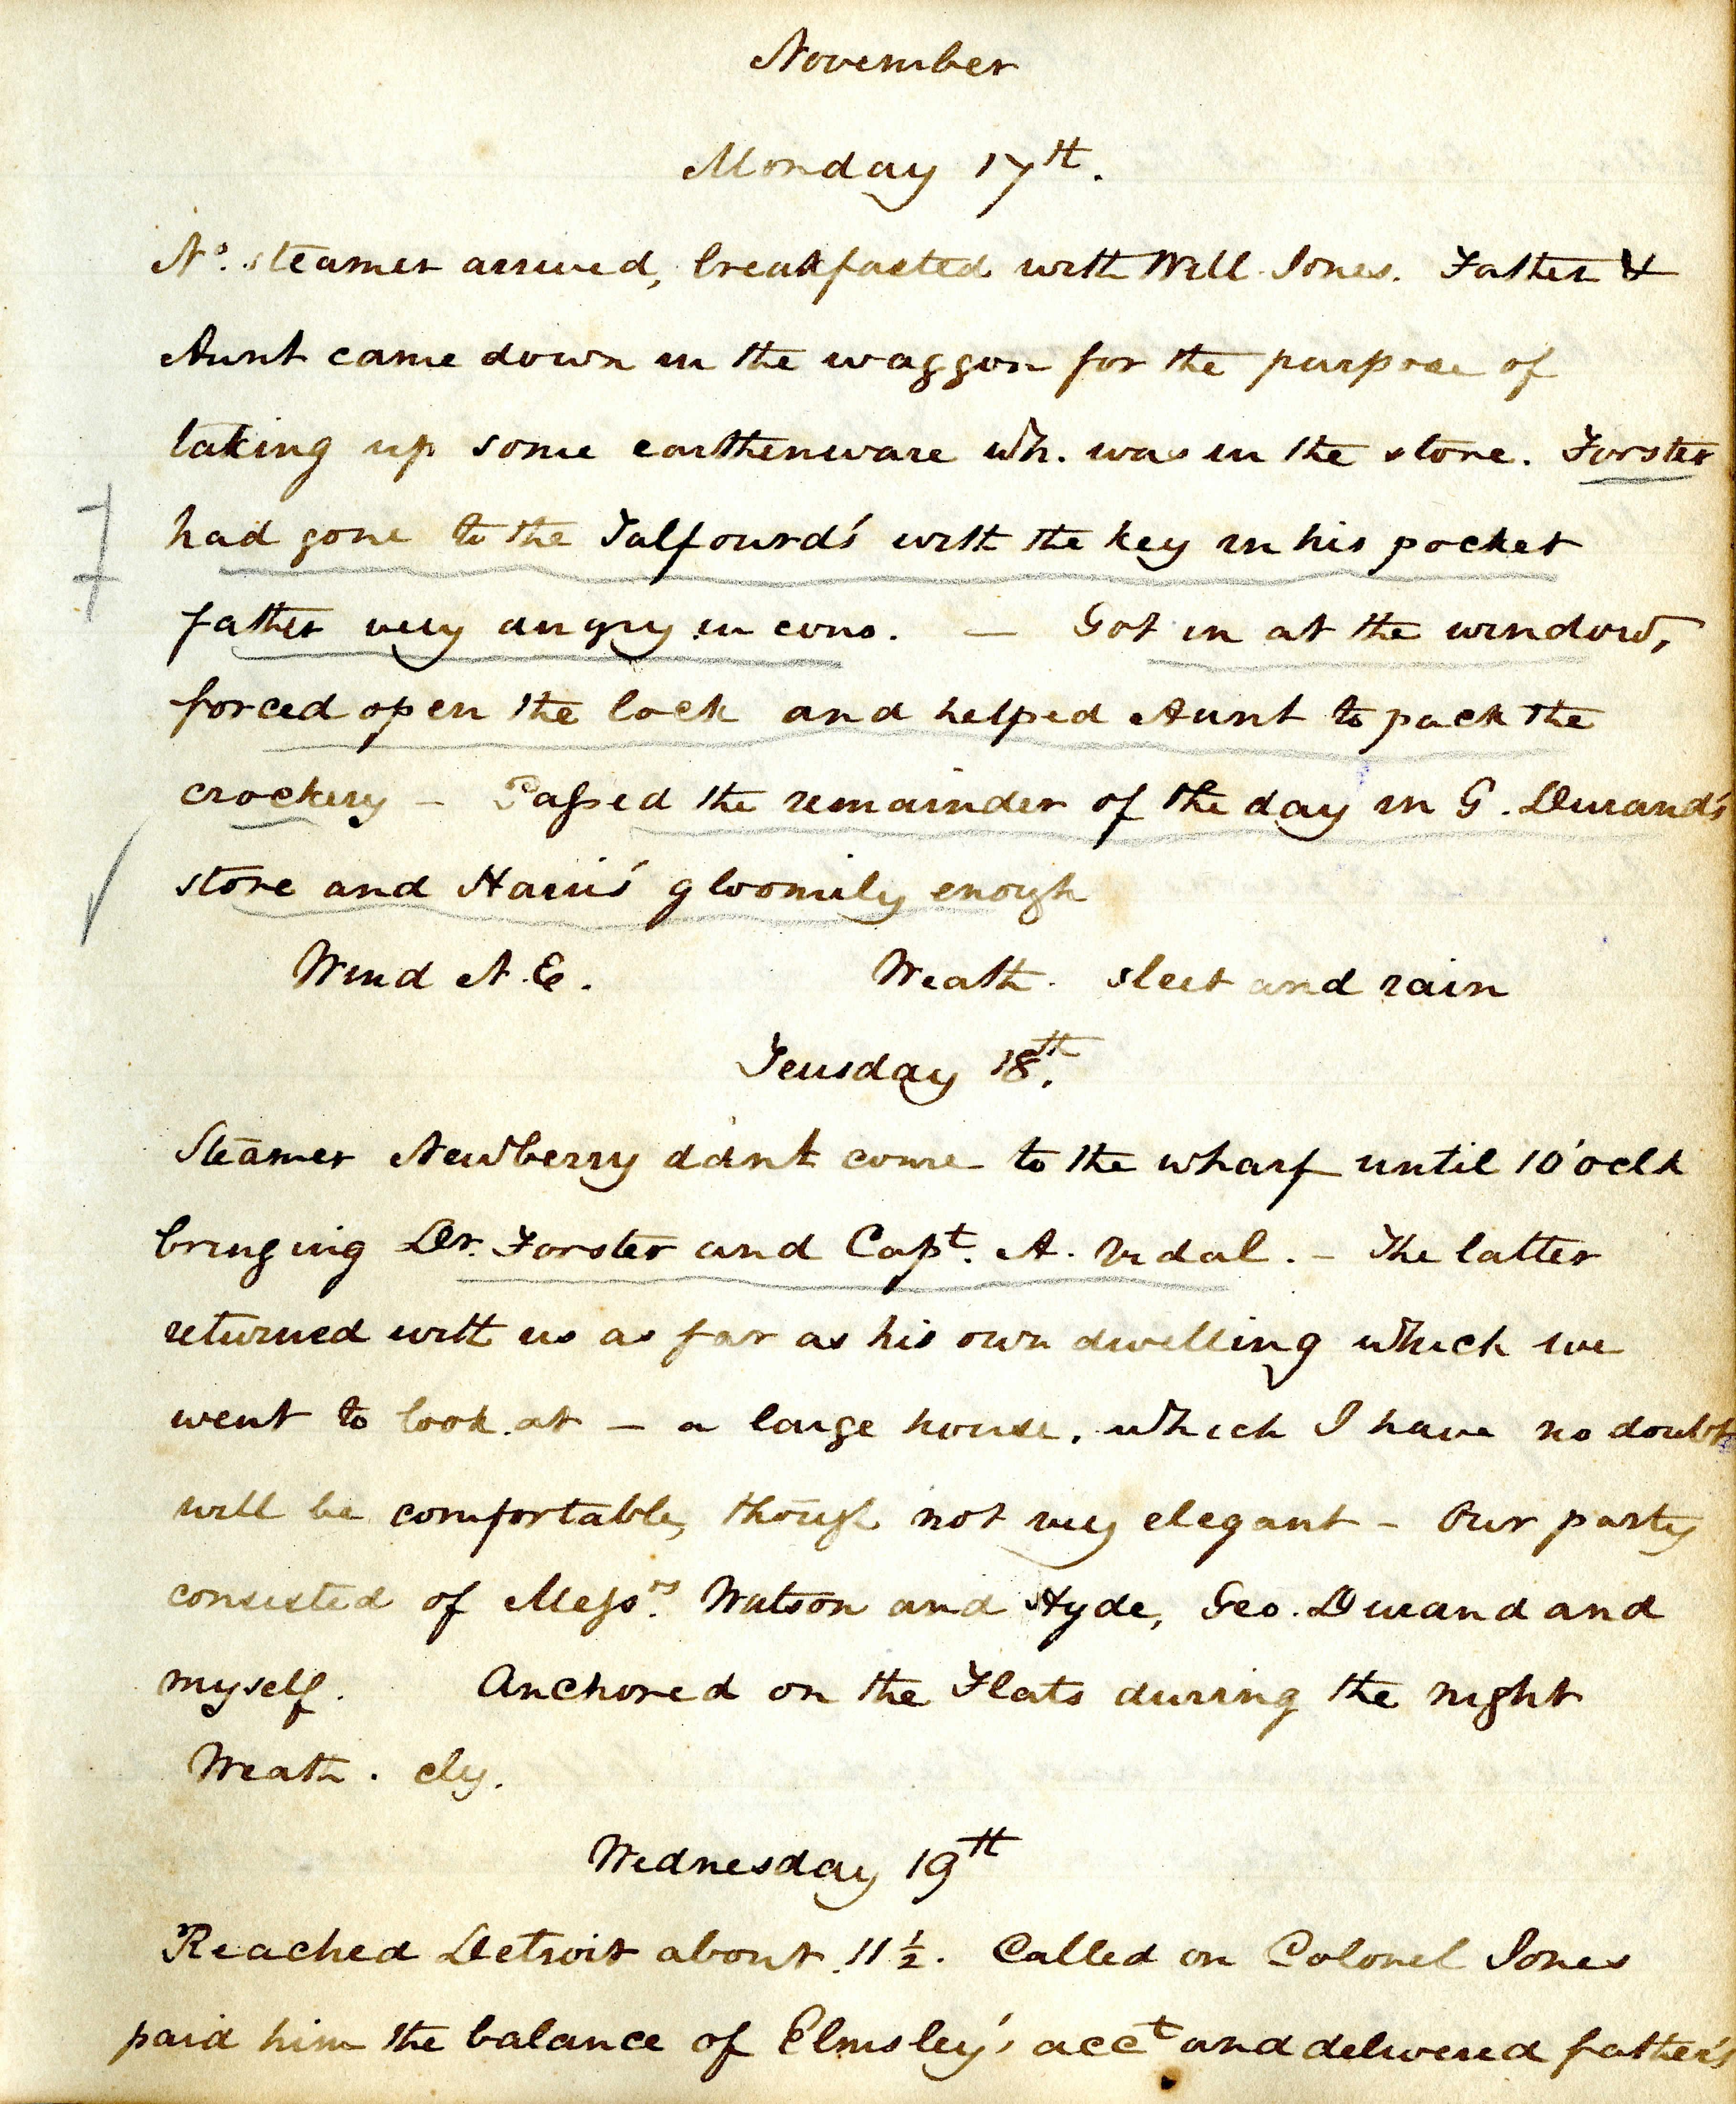 November
Monday 17th.
No. steamer arrived, breakfasted with Will Jones. Father &
Aunt came down in the waggon for the purpose of
taking up some earthenware wh. was in the store. Forster
had gone to the Talfourd's with the key in his pocket
father very angry in cons. — Got in at the window,
forced open the lock and helped Aunt to pack the
crockery – Passed the remainder of the day in G. Durand's
store and Harris' gloomily enough
Wind N.E. Weath. sleet and rain
Teusday 18th.
Steamer Newberry didn't come to the wharf until 10 'oclk
bringing Dr. Forster and Capt. A. Vidal. – The latter
returned with us as far as his own dwelling which we
went to look at – a large house, which I have no doubt
will be comfortable, though not very elegant – Our party
consisted of Messrs. Watson and Hyde, Geo. Durand and
myself. Anchored on the Flats during the night
Weath. cly.
Wednesday 19th
Reached Detroit about 11 ½. Called on Colonel Jones
paid him the balance of Elmsley's acct and delivered father's